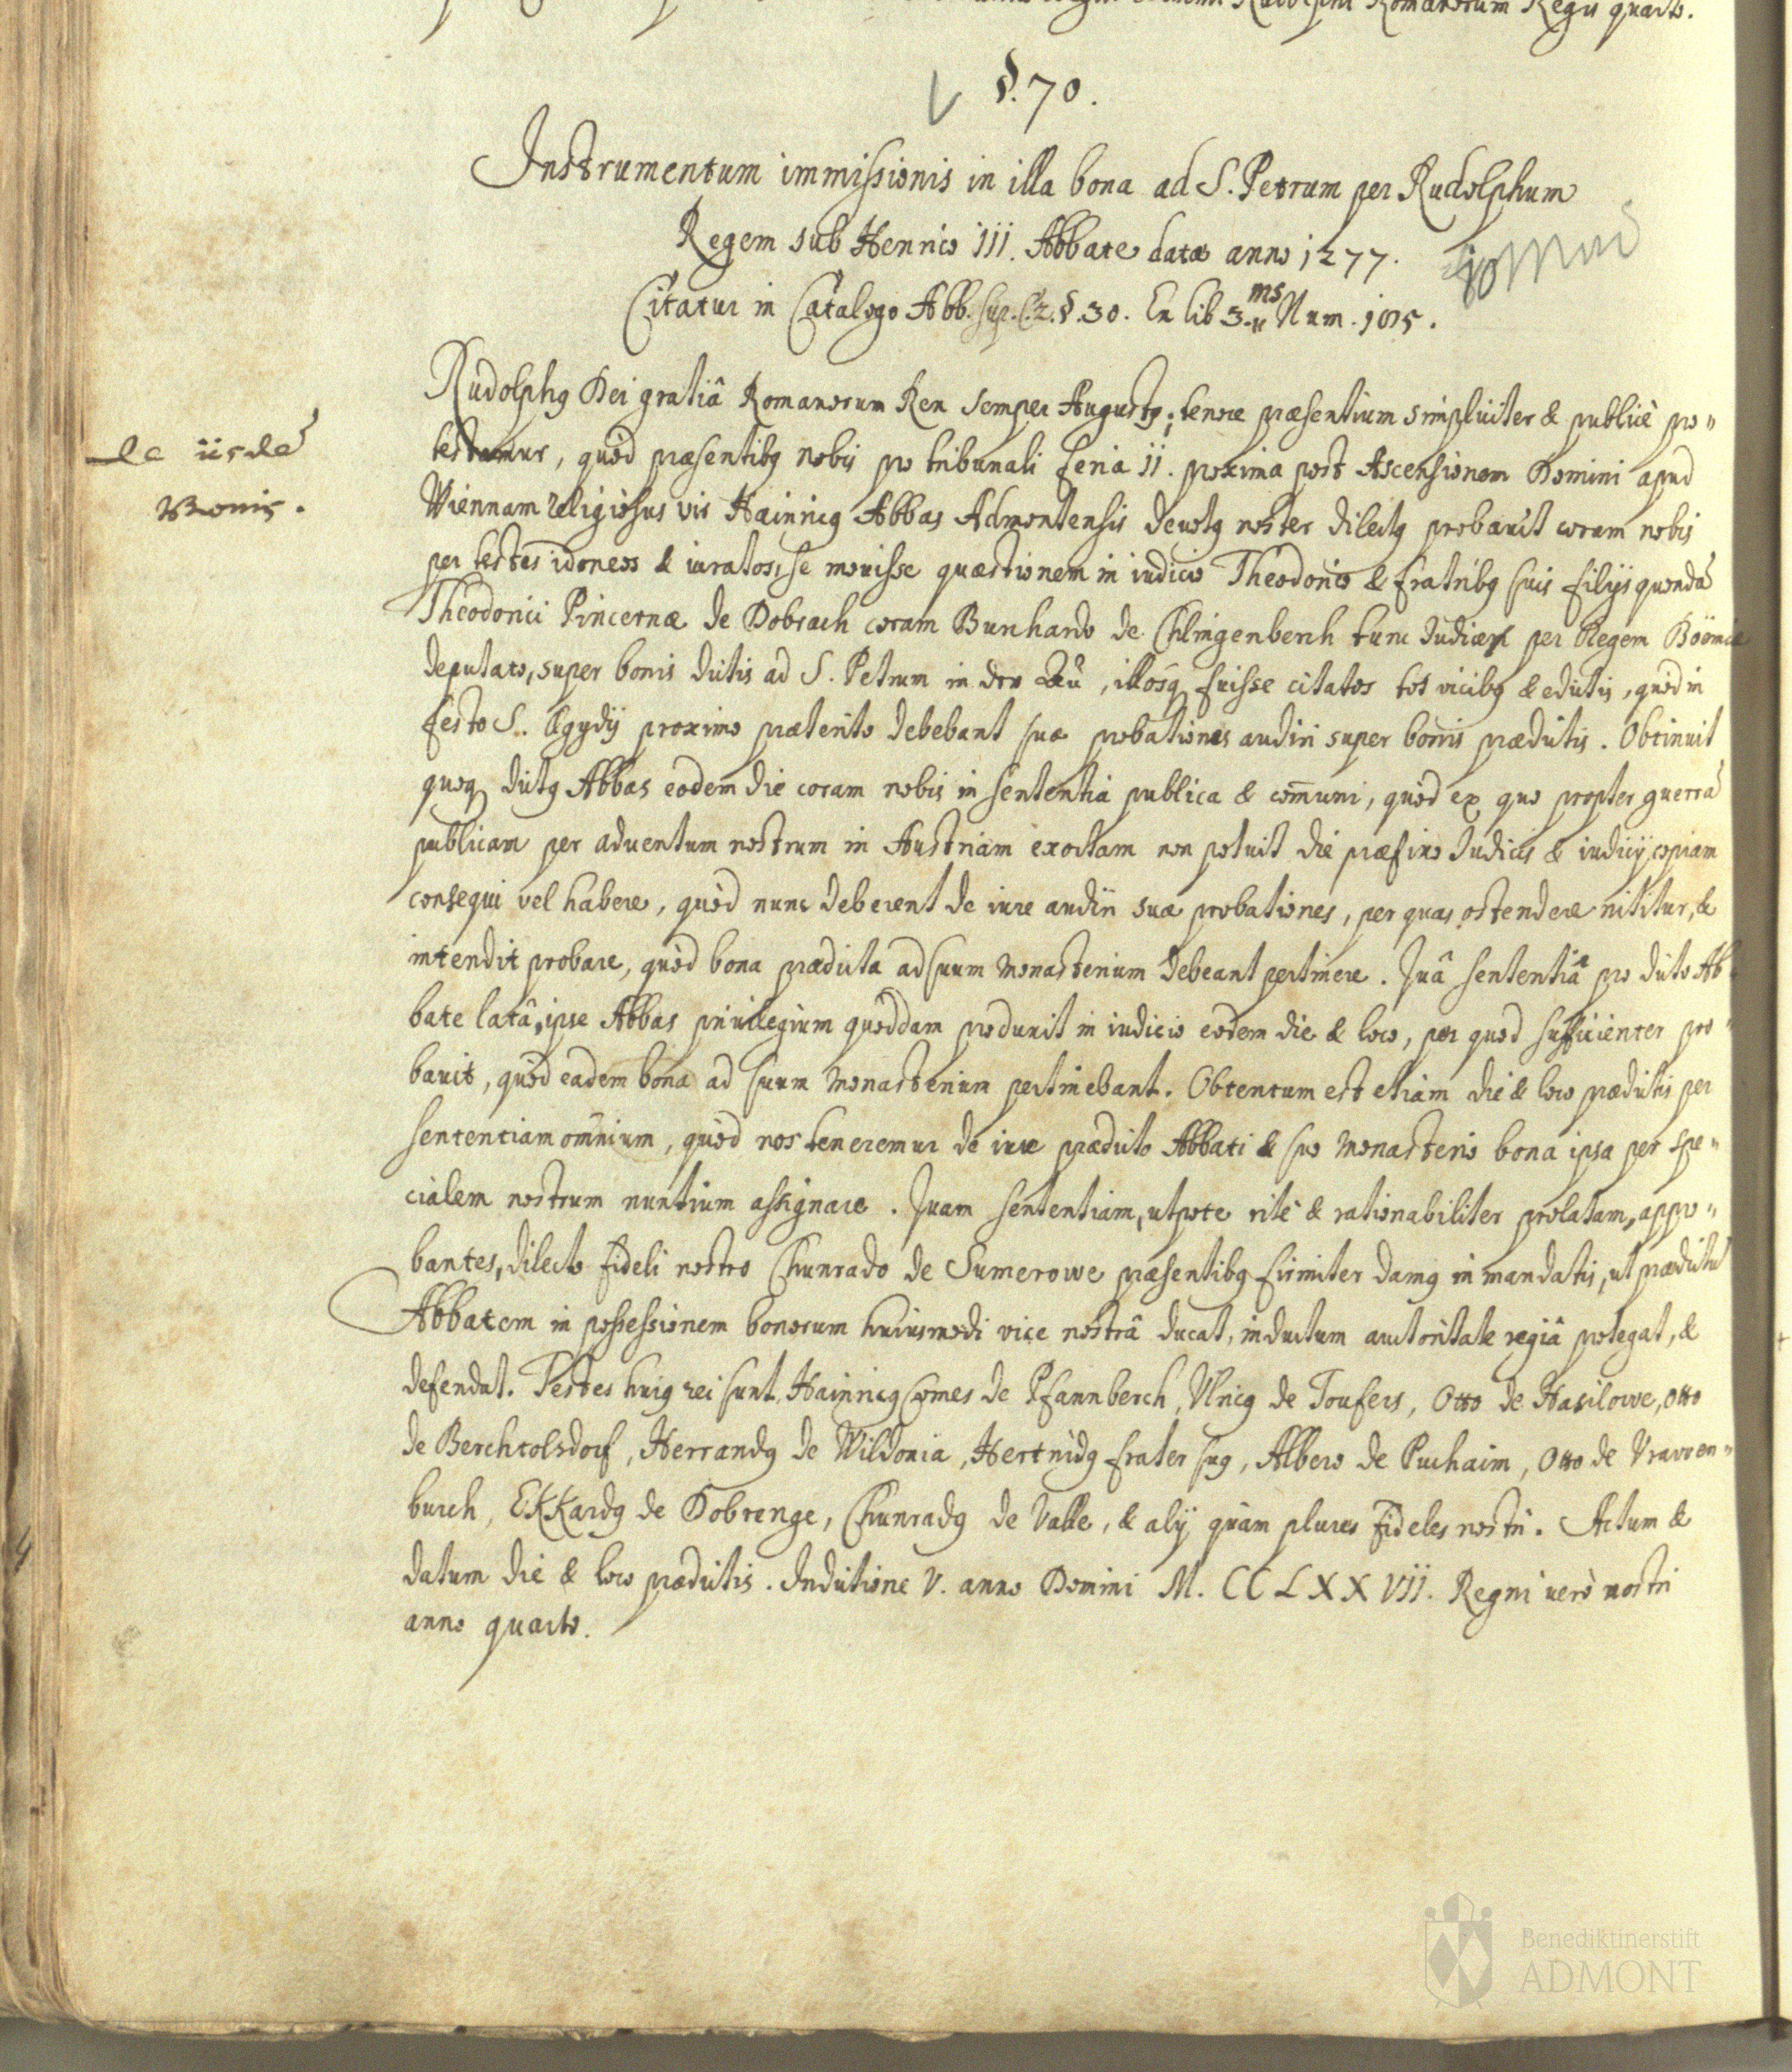 Rudolphi Romanorum Regis quarto.
§. 70.
Instrumentum immissionis in illa bona ad S. Petrum per Rudolphum
Regem sub Henrico III. Abbate datæ anno 1277.
Citatur in Catalogo Abb. sup. C. 2. §. 30. Ex lib 3. ms Num. 105.
de iisdẽ
Bonis.
Rudolphꝯ Dei gratiâ Romanorum Rex semper Augustꝯ; tenore præsentium simpliciter & publicè pro"
testamur, quòd præsentibꝯ nobis pro tribunali feria II. proxima post Ascensionem Domini apud
Viennam religiosus vir Hainricꝯ Abbas Admontensis deuotꝯ noster dilectꝯ probauit coram nobis
per testes idoneos & iuratos, se mouisse quæstionem in iudicio Theodorico & fratribꝯ suis filijs quondã
Theodorici Pincernæ de Dobrach coram Burchardo de Chlingenberch tunc Iudice per Regem Böömiæ
deputato, super bonis dictis ad S. Petrum in der Aü, illosq fuisse citatos tot vicibꝯ & edictis, quòd in
festo S. Ægydij proximo præterito debebant suæ probationes audiri super bonis prædictis. Obtinuit
quoq dictꝯ Abbas eodem die coram nobis in sententia publica & com̄uni, quòd ex quo propter guerrã
publicam per aduentum nostrum in Austriam exortam non potuit die præfixo Iudicis & iudicij copiam
consequi vel habere, quòd nunc deberent de iure audiri suæ probationes, per quas ostendere nititur, &
intendit probare, quòd bona prædicta ad suum monasterium debeant pertinere. Quâ sententiâ pro dicto Ab
bate latâ, ipse Abbas priuilegium quoddam produxit in iudicio eodem die & loco, per quod sufficienter pro"
bauit, quòd eadem bona ad suum monasterium pertinebant. Obtentum est etiam die & loco prædictis per
sententiam om̄nium, quòd nos teneremur de iure prædicto Abbati & suo monasterio bona ipsa per spe"
cialem nostrum nuntium assignare. Quam sententiam, utpote ritè & rationabiliter prolatam, appro"
bantes, dilecto fideli nostro Chunrado de Sumerowe præsentibꝯ firmiter damꝯ in mandatis, ut prædictũ
Abbatem in possessionem bonorum huiusmodi vice nostrâ ducat, inductum auctoritate regiâ protegat, &
defendat. Testes huiꝯ rei sunt, Hainricꝯ Comes de Pfannberch, Vlricꝯ de Toufers, Otto de Hasilowe, Otto
de Berchtolsdorf, Herrandꝯ de Wildonia, Hertnidꝯ frater suꝯ, Albero de Puchaim, Otto de Vrawen"
burch, Ekkardꝯ de Dobrenge, Chunradꝯ de Valle, & alij quàm plures fideles nostri. Actum &
datum die & loco prædictis. Indictione V. anno Domini M. CC LXXVII. Regni verò nostri
anno quarto.
Benediktinerstift
ADMONT